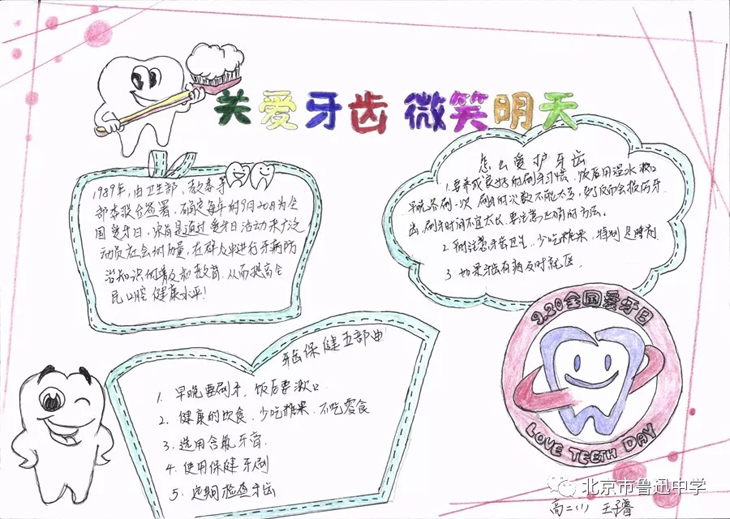 关爱牙齿 微笑明天
1989年,由卫生部、教委等
部委联合签署,确定每年的9月20日为全
国爱牙日,宗旨是通过爱牙日活动来广泛
动员社会的力量,在群众中进行牙病防
治知识的普及和教育,从而提高全
民口腔健康水平!
怎么爱护牙齿
1.要养成良好的刷牙习惯,饭后用温水漱口
早晚各刷一次,刷牙的次数不能太多,多了反而会损伤牙
齿,刷牙时间不宜太长,要注意上下刷的方法。
2.
少吃糖果,特别是睡前
3.
有病及时就医
牙齿保健五部曲
1. 早晚要刷牙,饭后要漱口
2. 健康的饮食,少吃糖果,不吃零食
3. 选用含氟牙膏
4. 使用保健牙刷
5. 定期检查牙齿
9.20全国爱牙日
LOVE TEETH DAY
北京市鲁迅中学
高二(1)